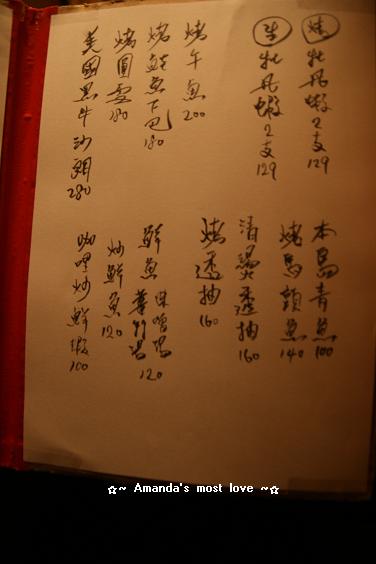 烤牡丹蝦2支129
生牡丹蝦2支129
烤午魚200
烤鮭魚下巴180
烤圓雪180
美國黑牛沙朗280
本島青魚100
烤馬頭魚140
清燙透抽160
烤透抽160
鮮魚味噌湯
薑絲湯120
炒鮮魚120
咖哩炒鮮蝦100
☆~ Amanda's most love ~☆